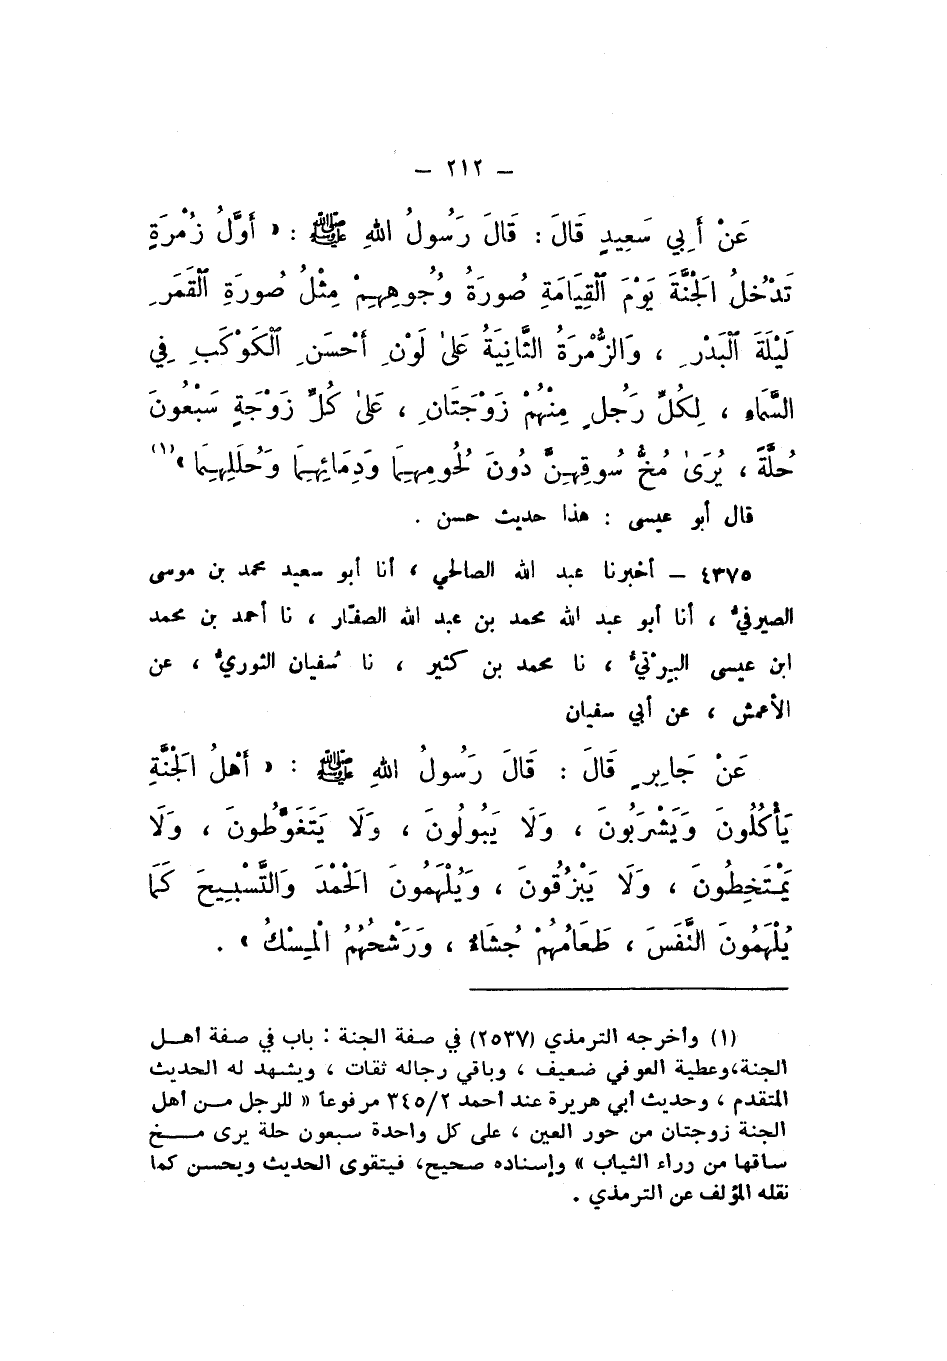 – ٢١٢ –
عَنْ أَبِي سَعِيدٍ قَالَ : قَالَ رَسُولُ اللهِ ﷺ : « أَوَّلُ زُمْرَةٍ
تَدْخُلُ الجَنَّةَ يَوْمَ ٱلْقِيَامَةِ صُورَةُ وُجُوهِهِمْ مِثْلُ صُورَةِ ٱلْقَمَرِ
لَيْلَةَ ٱلْبَدْرِ ، وَالزُّمْرَةُ الثَّانِيَةُ عَلَىٰ لَوْنِ أَحْسَنِ ٱلْكَوْكَبِ فِي
السَّمَاءِ ، لِكُلِّ رَجُلٍ مِنْهُمْ زَوْجَتَانِ ، عَلَىٰ كُلِّ زَوْجَةٍ سَبْعُونَ
حُلَّةً ، يُرَىٰ مُخُّ سُوقِهِنَّ دُونَ لُحُومِهِمَا وَدِمَائِهِمَا وَحُلَلِهِمَا »(١)
قال أبو عيسى : هذا حديث حسن .
٤٣٧٥ – أخبرنا عبد الله الصالحي ، أنا أبو سعيد محمد بن موسى
الصيرفيُّ ، أنا أبو عبد الله محمد بن عبد الله الصفّار ، نا أحمد بن محمد
ابن عيسى البِرْتيُّ ، نا محمد بن كثير ، نا سُفيان الثوريُّ ، عن
الأعمش ، عن أبي سفيان
عَنْ جَابِرٍ قَالَ : قَالَ رَسُولُ اللهِ ﷺ : « أَهْلُ الجَنَّةِ
يَأْكُلُونَ وَيَشْرَبُونَ ، وَلَا يَبُولُونَ ، وَلَا يَتَغَوَّطُونَ ، وَلَا
يَمْتَخِطُونَ ، وَلَا يَبْزُقُونَ ، وَيُلْهَمُونَ الحَمْدَ وَالتَّسْبِيحَ كَمَا
يُلْهَمُونَ النَّفَسَ ، طَعَامُهُمْ جُشَاءٌ ، وَرَشْحُهُمُ الْمِسْكُ » .
(١) وأخرجه الترمذي (٢٥٣٧) في صفة الجنة : باب في صفة أهل
الجنة،وعطية العوفي ضعيف ، وباقي رجاله ثقات ، ويشهد له الحديث
المتقدم ، وحديث أبي هريرة عند أحمد ٣٤٥/٢ مرفوعاً « للرجل من أهل
الجنة زوجتان من حور العين ، على كل واحدة سبعون حلة يرى مخ
ساقها من رراء الثياب » وإسناده صحيح، فيتقوى الحديث ويحسن كما
نقله المؤلف عن الترمذي .